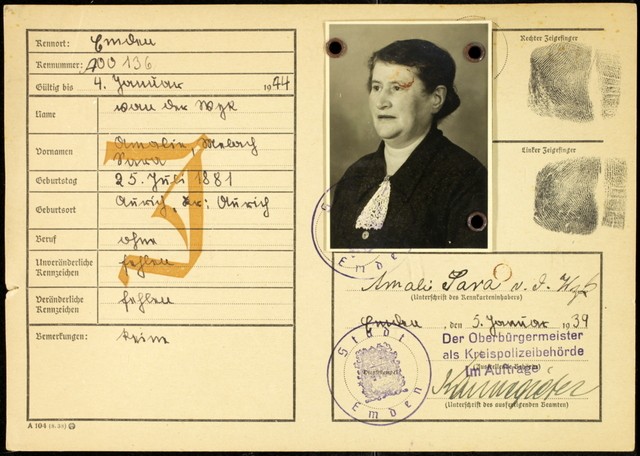 Kennort: Emden
Kennummer: A00136
Gültig bis 4. Januar 1944
Name van der Wyk
Vornamen Amalie,
Sara
Geburtstag 25. Juli 1881
Geburtsort Aurich, Kr: Aurich
Beruf ohne
Unveränderliche Kennzeichen fehlen
Veränderliche Kennzeichen fehlen
Bemerkungen: keine
J
A 104
Rechter Zeigefinger
Linker Zeigefinger
Emden
Amalie Sara v. d. Wyk
(Unterschrift des Kennkarteninhabers)
Emden, den 5. Januar 1939
Der Oberbürgermeister
als Kreispolizeibehörde
Im Auftrage
(Unterschrift des ausfertigenden Beamten)
Stadt
Emden